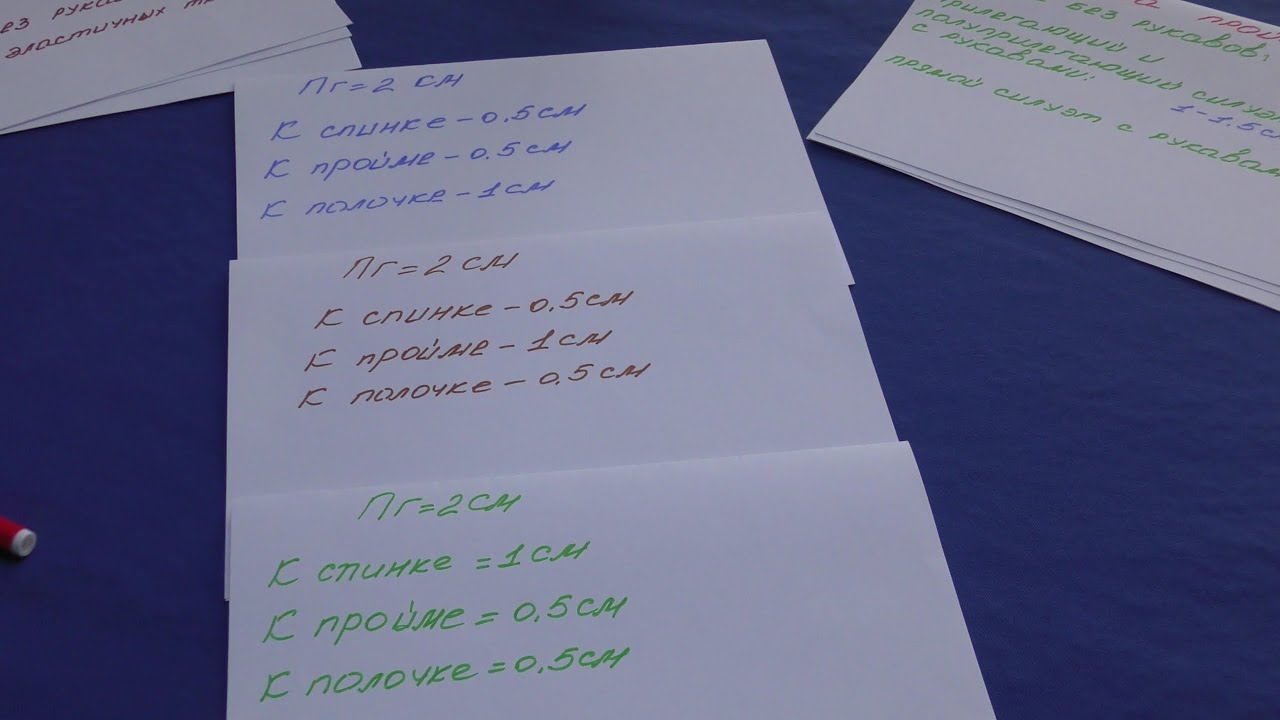 без рук
эластичных т
Пг=2 см
К спинке – 0.5см
К пройме – 0.5см
К полочке – 1см
Пг=2 см
К спинке – 0.5см
К пройме – 1см
К полочке – 0.5см
Пг=2см
К спинке =1см
К пройме = 0.5см
К полочке =0.5см
а прой
без рукавов;
прилегающий и
полуприлегающий силуэ
с рукавами;
1-1.5с
прямой силуэт с рукавам